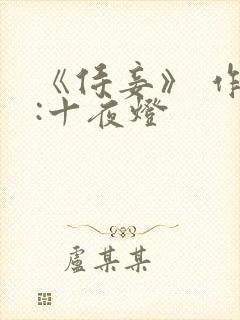 《侍妾》 作
:十夜燈
盧某某